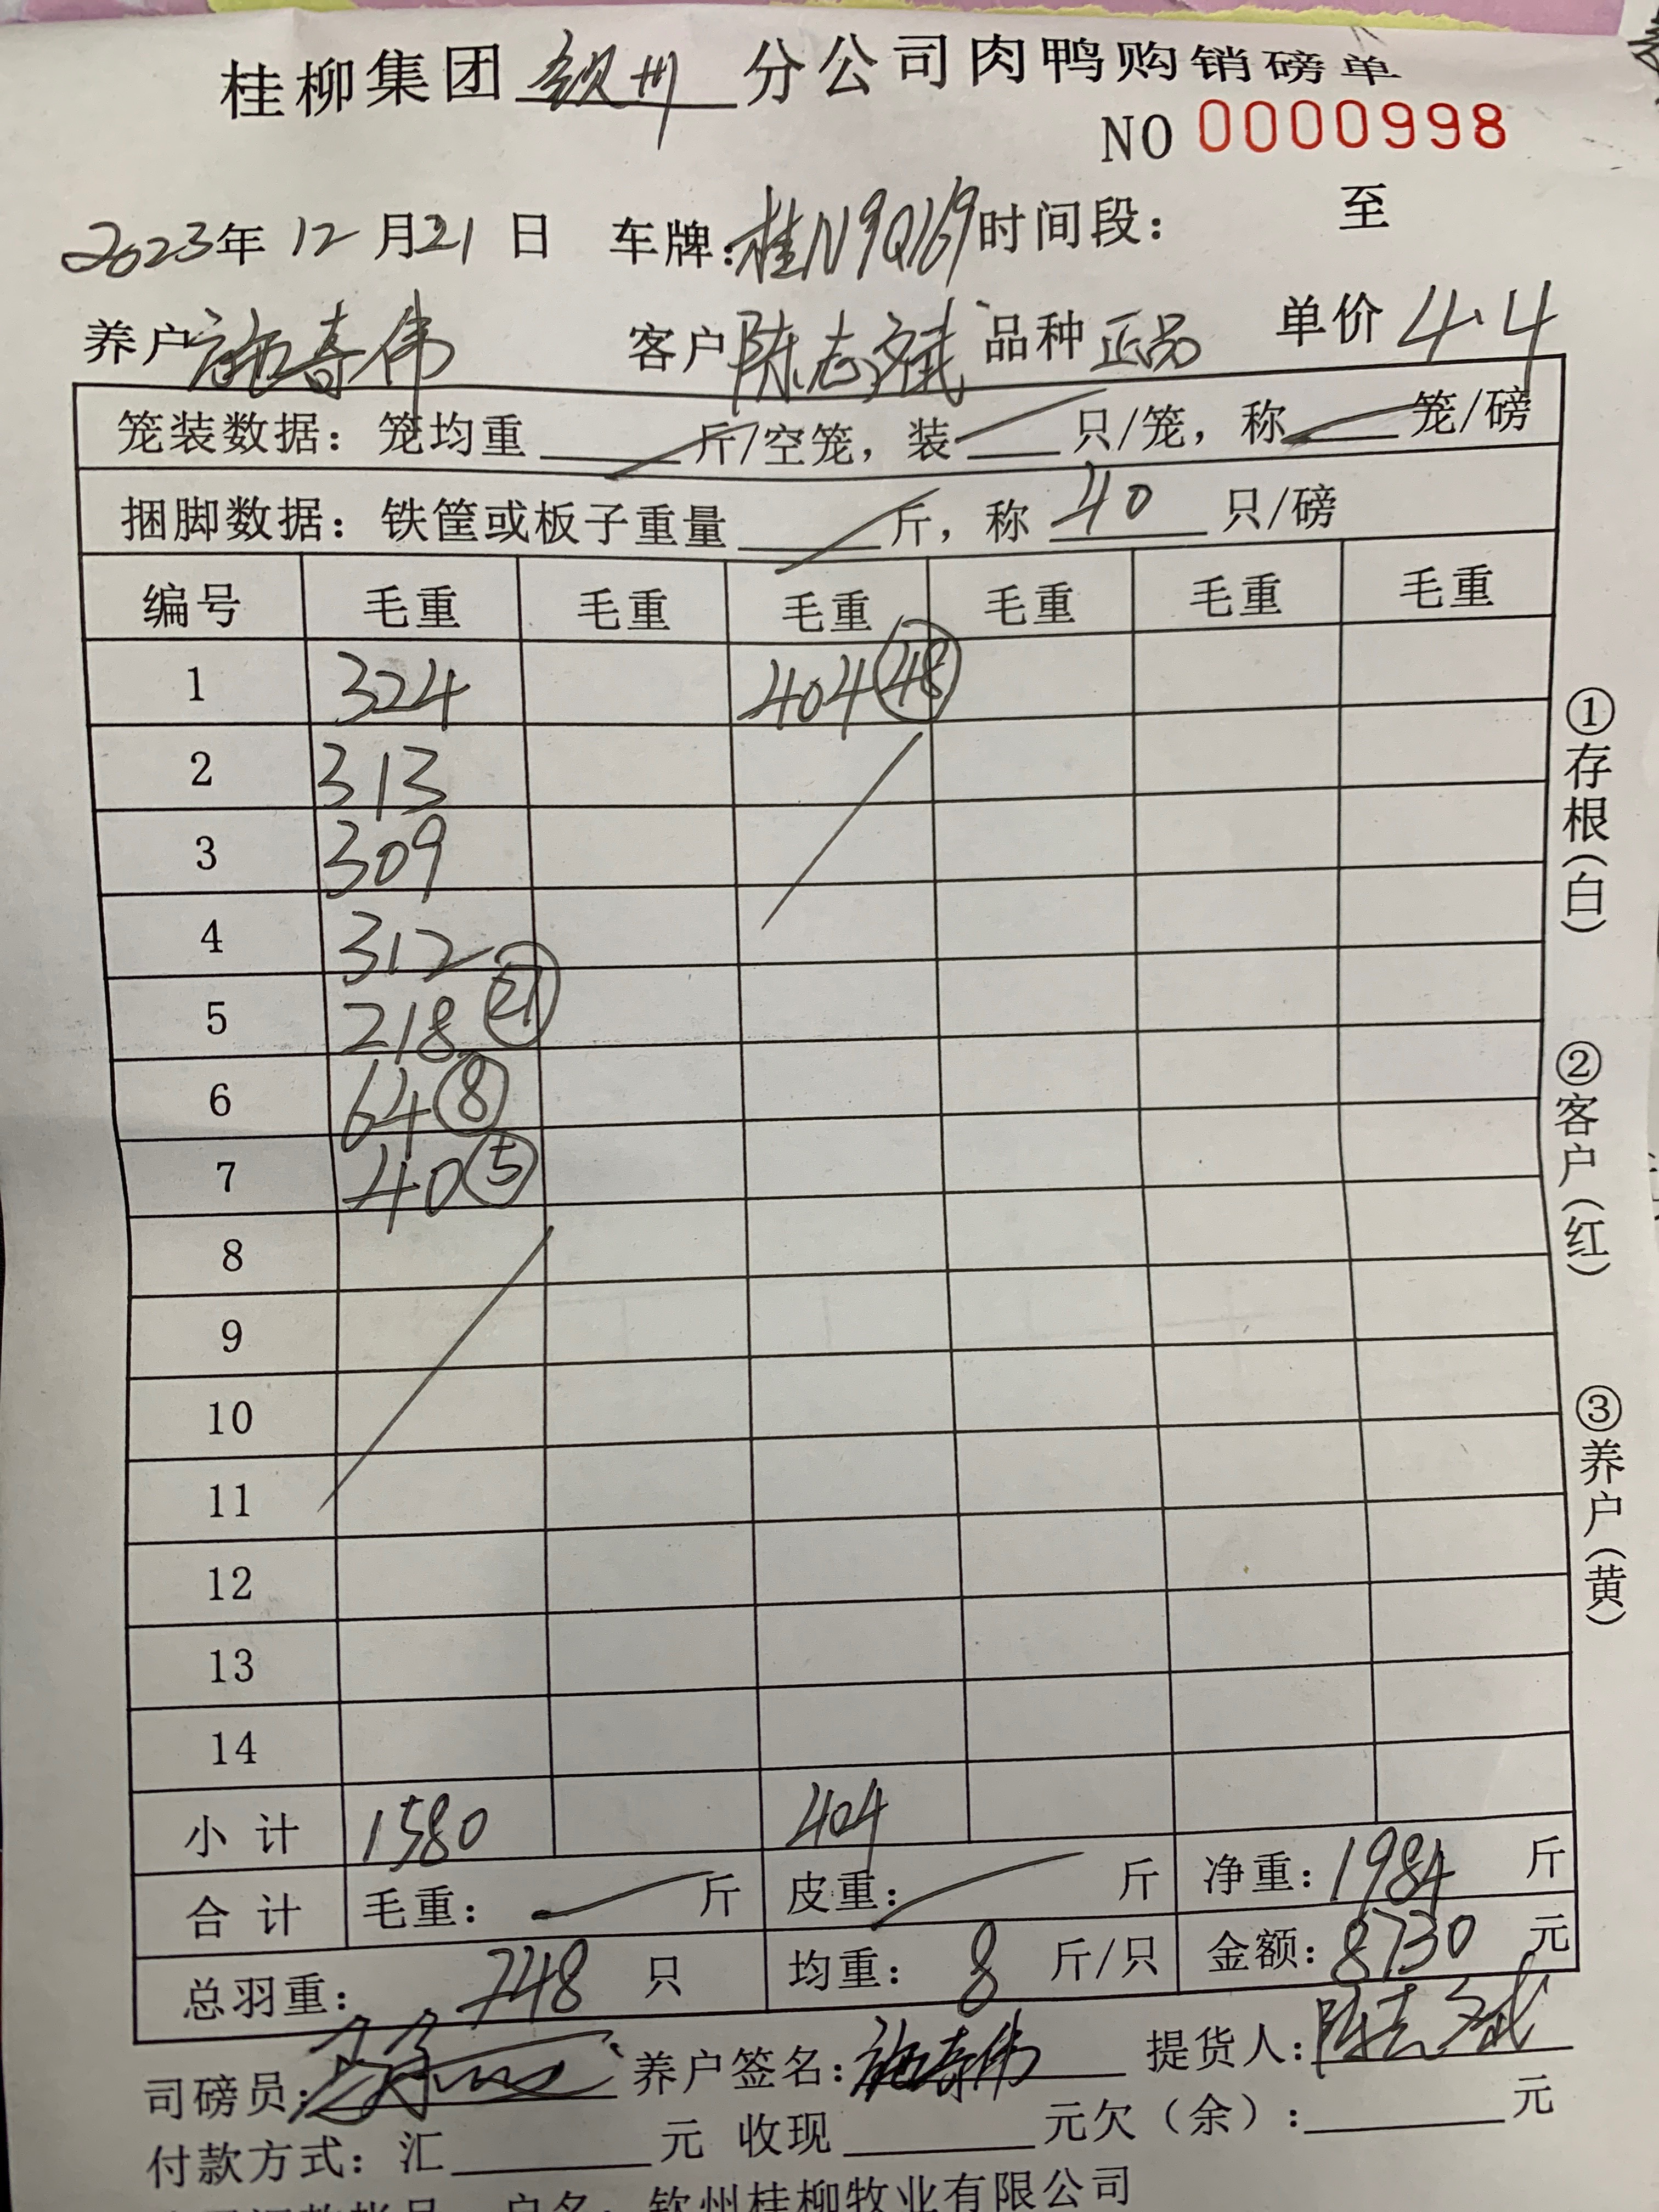 桂柳集团 钦州 分公司肉鸭购销磅单
NO 0000998
2023年 12 月21 日 车牌:桂N9Q169 时间段: 至
养户 施寿伟 客户 陈志斌 品种 正品 单价 4.4
笼装数据: 笼均重 斤/空笼, 装 只/笼, 称 笼/磅
捆脚数据: 铁筐或板子重量 斤, 称 40 只/磅
编号 毛重 毛重 毛重 毛重 毛重 毛重
1 324 404 48
2 313
3 309
4 312
5 218 27
6 64 8
7 40 5
8
9
10
11
12
13
14
小 计 1580 404
合 计 毛重: 斤 皮重: 斤 净重: 1984 斤
总羽重: 748 只 均重: 8 斤/只 金额: 8730 元
司磅员: 养户签名: 施寿伟 提货人: 陈志斌
付款方式: 汇 元 收现 元欠(余): 元
户名: 钦州桂柳牧业有限公司
①存根(白)
②客户(红)
③养户(黄)